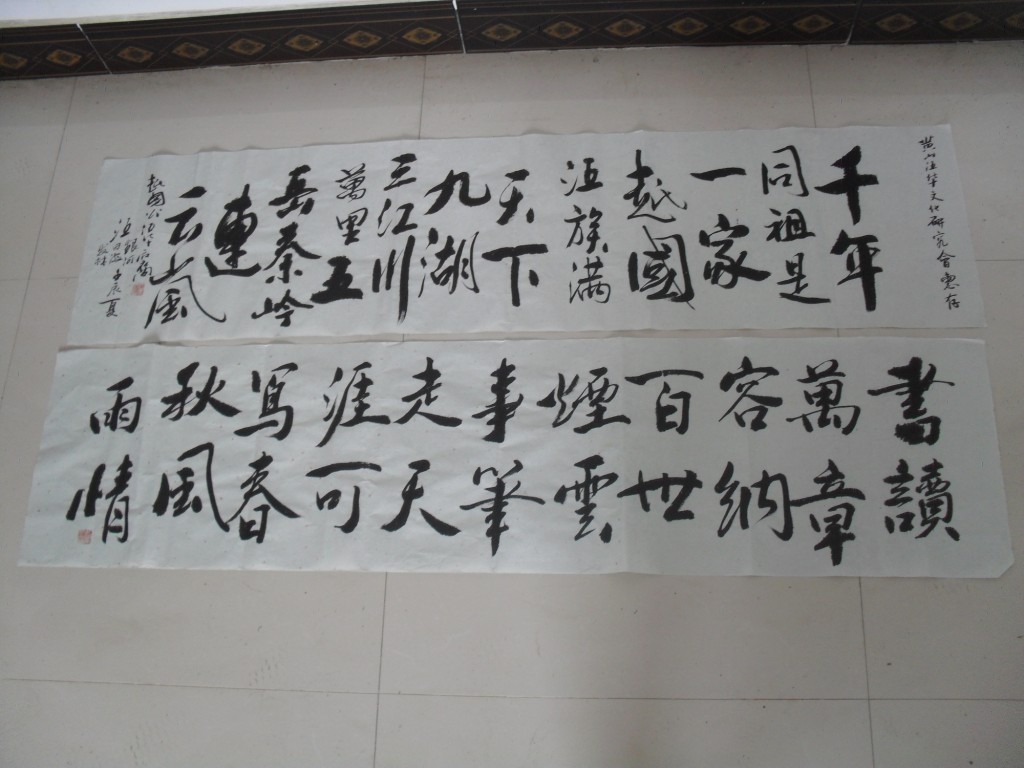 黄山汪华文化研究会惠存
千年
同祖是
一家
越國
汪族满
天下
九湖
三江川
萬里五
岳秦岭
連
云嵐
越國公汪华后裔
壬辰夏
書讀
萬章
容納
百世
煙雲
事筆
走天
涯可
寫春
秋風
雨情